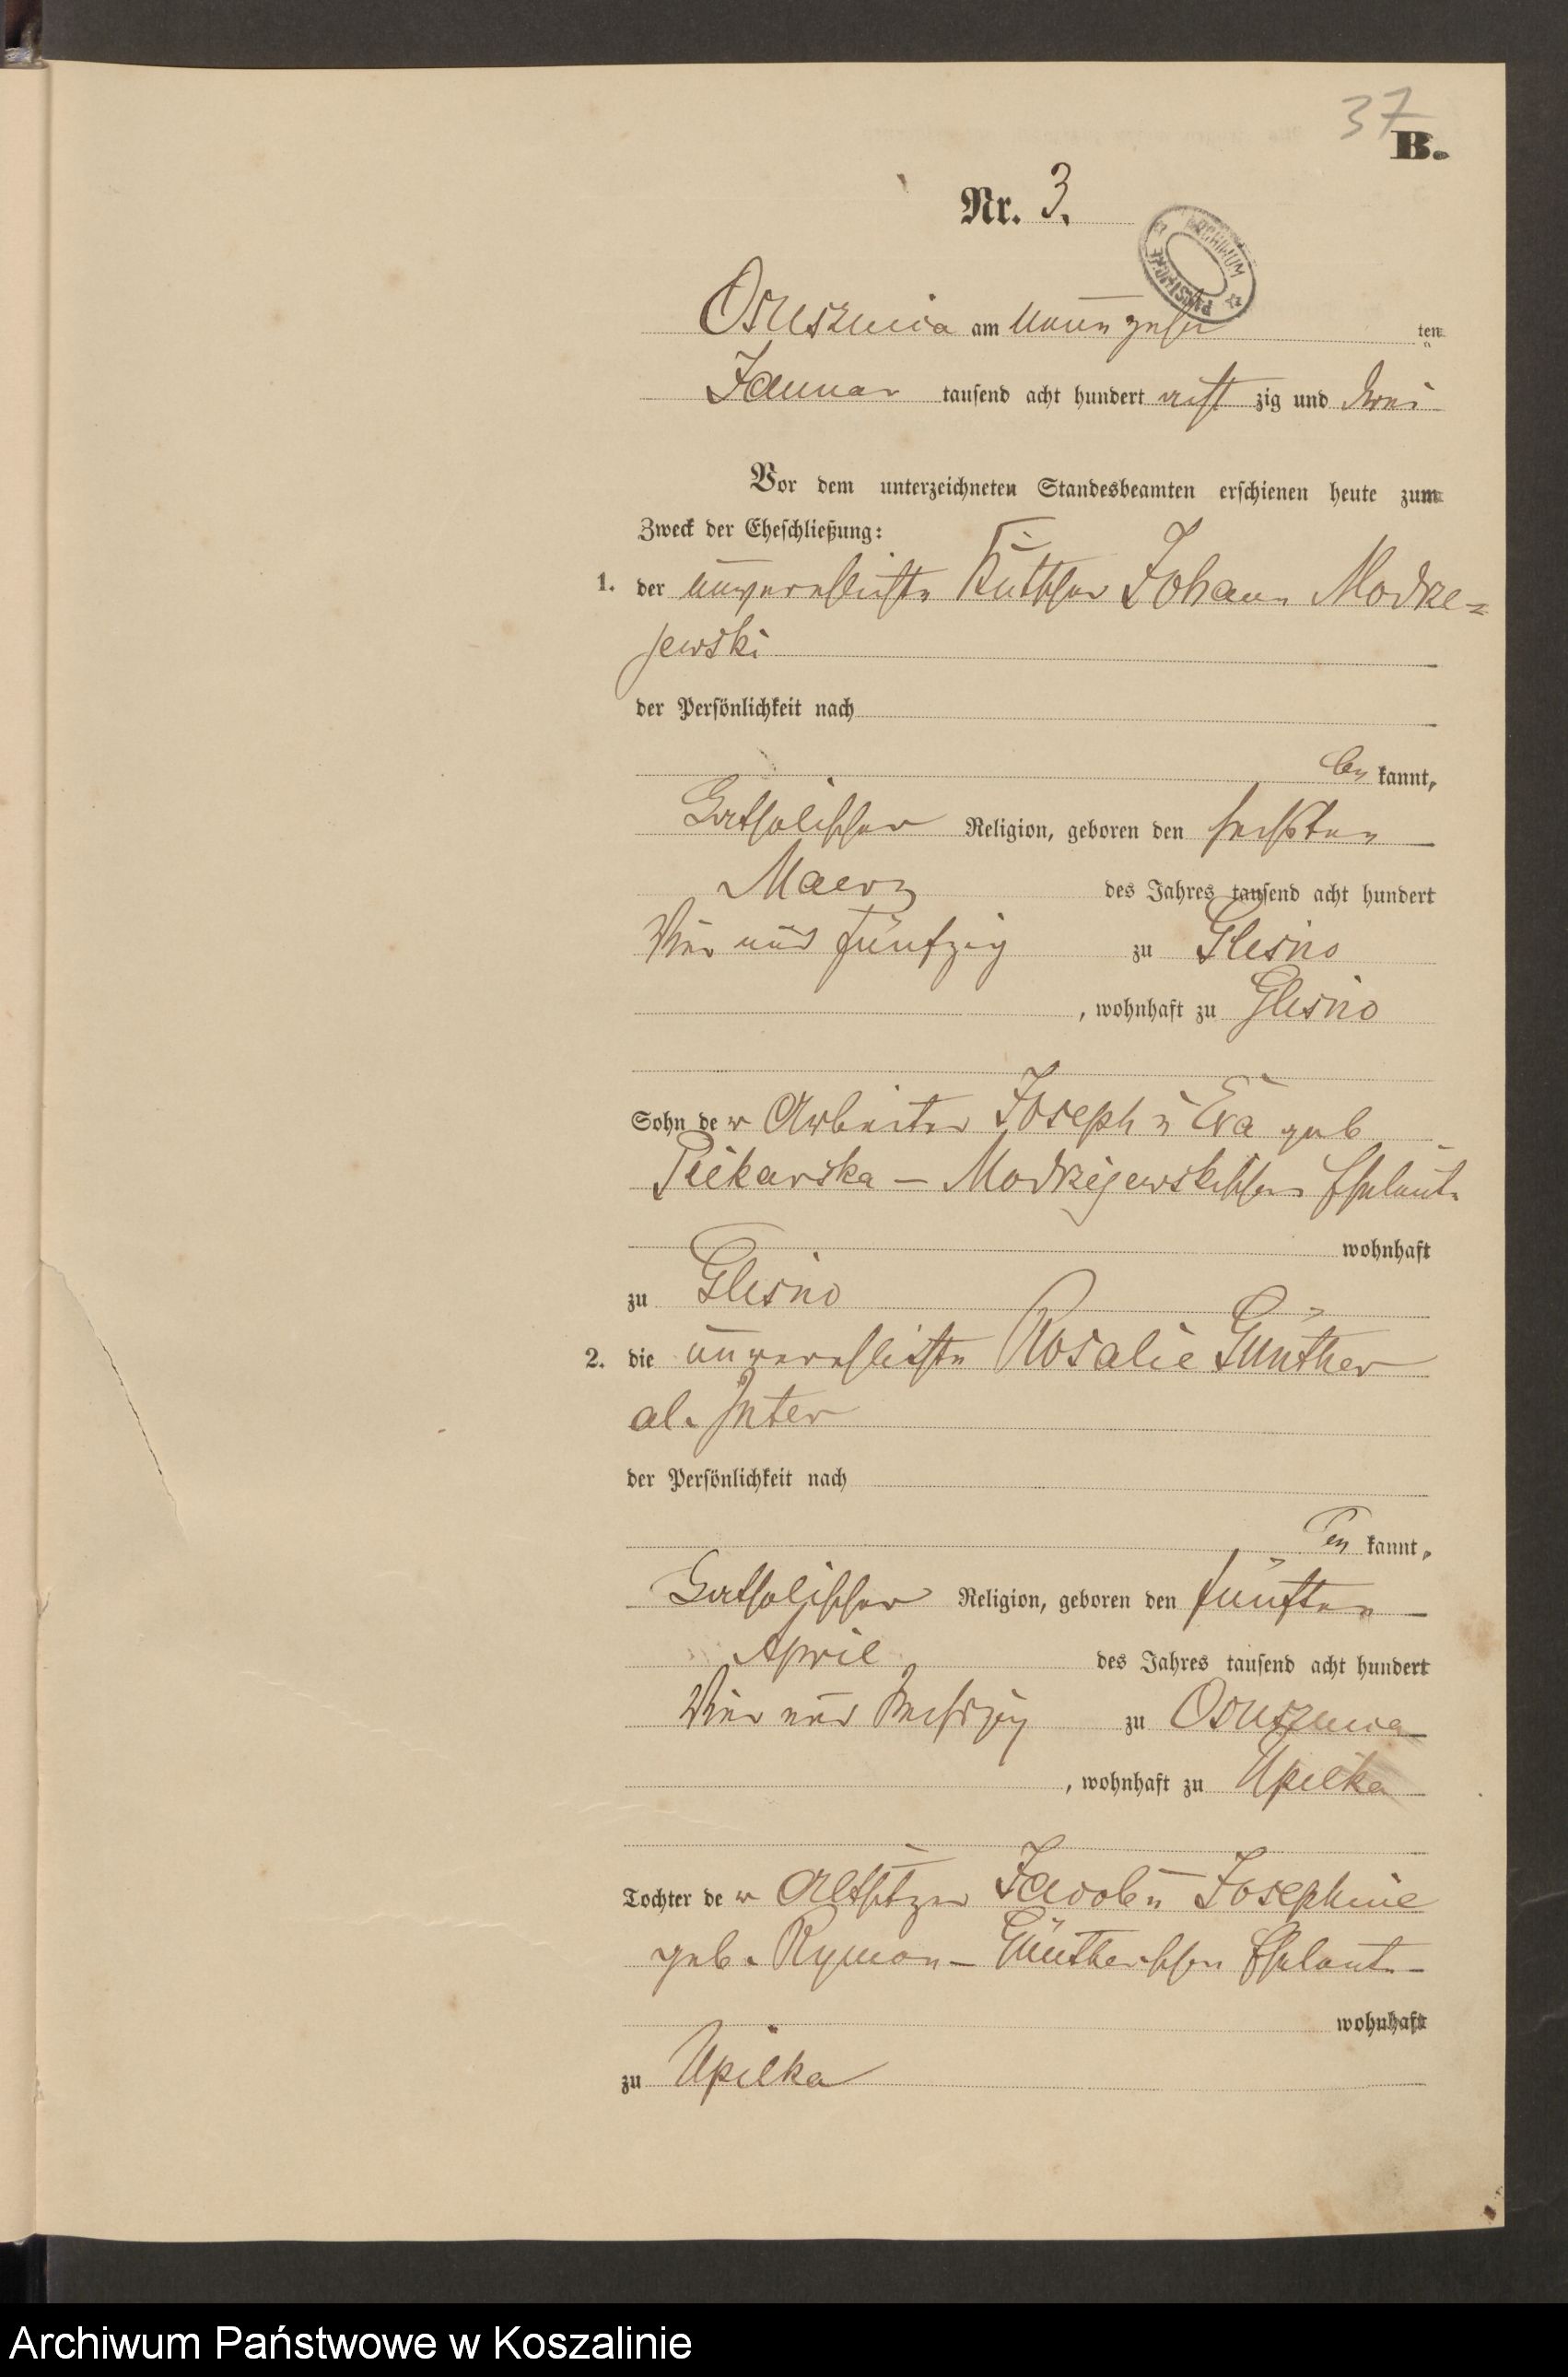 37
B.
Nr. 3.
ARCHIWUM PAŃSTWOWE
Osusznica am neunzehn ten
Januar tausend acht hundert acht zig und drei
Vor dem unterzeichneten Standesbeamten erschienen heute zum
Zweck der Eheschließung:
1. der unverehlichte Kutscher Johann Modrze=
jewski
der Persönlichkeit nach
be kannt,
Catholischer Religion, geboren den sechsten
Maerz des Jahres tausend acht hundert
Vier und fünfzig zu Glisno
, wohnhaft zu Glisno
Sohn de r Arbeiter Joseph u Eva geb
Piekarska – Modrzejewskischen Eheleute
wohnhaft
zu Glisno
2. die unverehlichte Rosalie Günther
al. Jnter
der Persönlichkeit nach
be kannt,
Catholischer Religion, geboren den fünften
April des Jahres tausend acht hundert
Vier und Sechszig zu Osusznica
, wohnhaft zu Upilka
Tochter de r Altsitzer Jacob u Josephine
geb. Rymon – Güntherschen Eheleute –
wohnhaft
zu Upilka
Archiwum Państwowe w Koszalinie